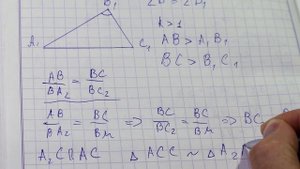 B₁
∠B = ∠B₁
k > 1
A₁
C₁
AB > A₁B₁
BC > B₁C₁
AB/BA₂ = BC/BC₂
AB/BA₂ = BC/BM ⇒ BC/BC₂ = BC/BM ⇒ BC
A₂C∩AC △ACC ~ △A₂